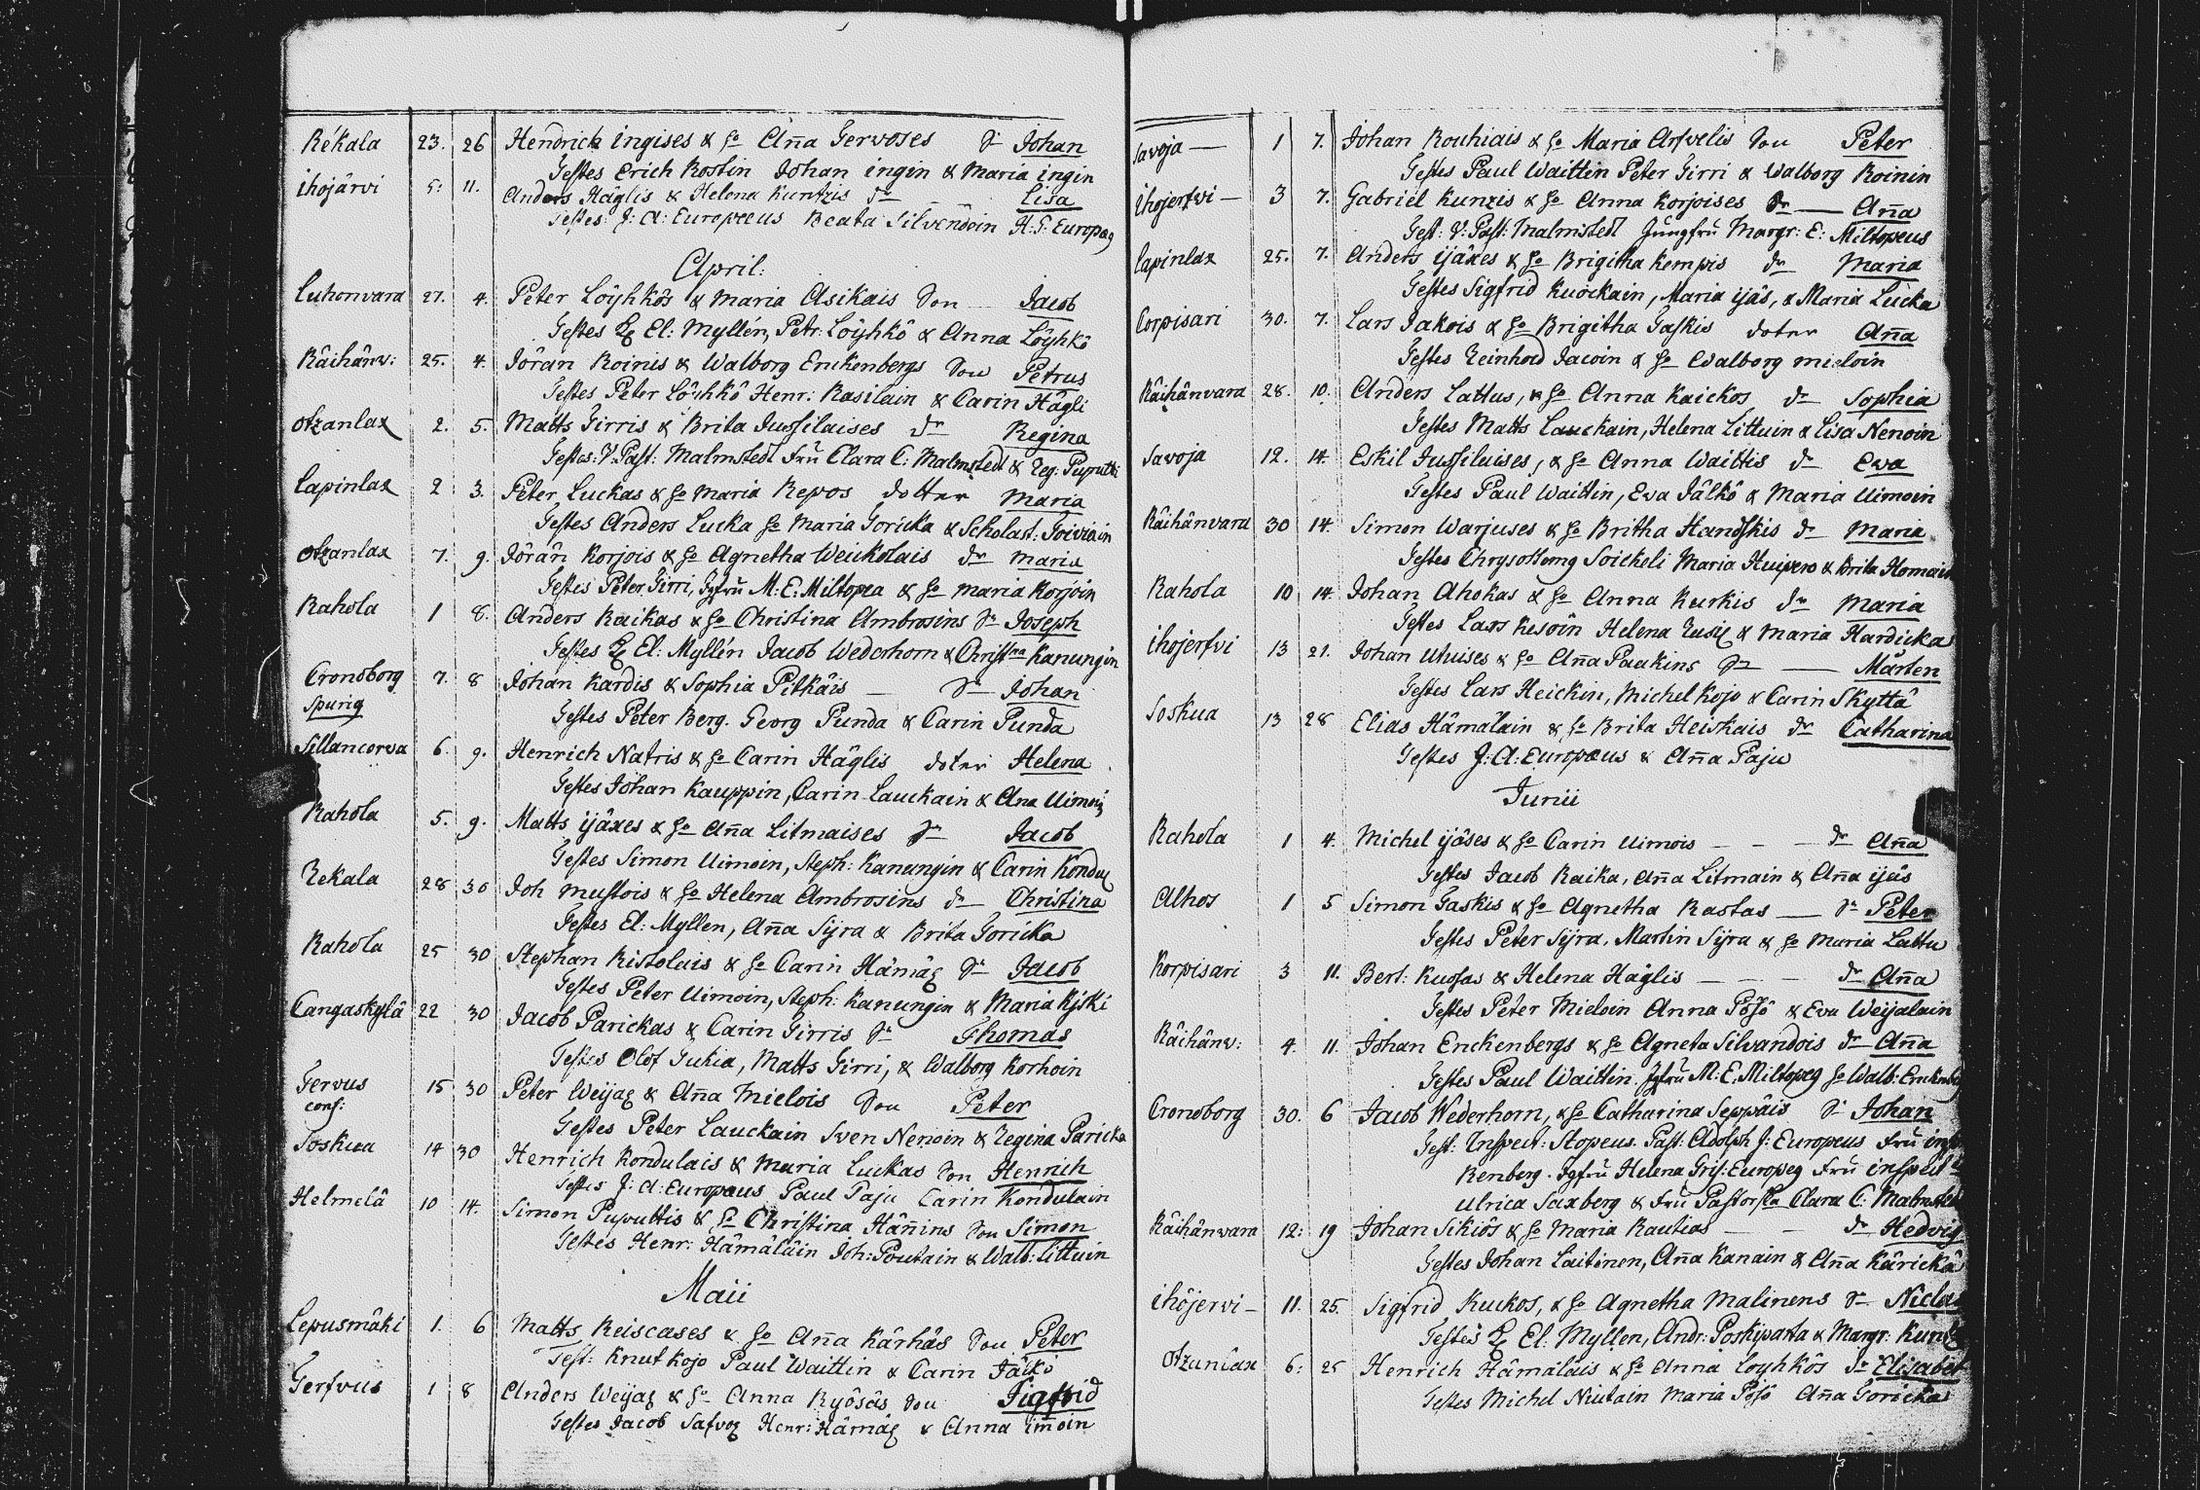 Rekala 23. 26 Hendrick ingises & Ho Aña Gervoses Sn Johan
Testes Erich Rostin Johan ingin & Maria ingin
ihojärvi 5. 11. Anders Häglis & Helena Kuntzis dr Lisa
Testes: J: A: Europæus Beata Silvendoin H: G: Europæ
April:
Luhonvara 27. 4. Peter Löyhkös & Maria Asikais Son Jacob
Testes El: Myllén, Petr: Löyhkö & Anna Löyhkö
Räihänv: 25. 4. Jöran Roinis & Walborg Enckenbergs Son Petrus
Testes Peter Löyhkö Henr: Rasilain & Carin Hägli
otzanlax 2. 5. Matts Girris & Brita Jussilaises dr Regina
Testes: V: Past: Malmstedt Fru Clara C: Malmstedt & Reg: Puputti
Lapinlax 2 3. Peter Luckas & Ho Maria Repos dotter Maria
Testes Anders Lucka Ho Maria Toricka & Scholast: Toiviain
otzanlax 7. 9. Jöran Korjois & Ho Agnetha Weickolais dr Maria
Testes Peter Girri, Jgfru M: E: Miltopæa & Ho Maria Korjoin
Rahola 1 8. Anders Raikas & Ho Christina Ambrosins Sn Joseph
Testes El: Myllén Jacob Wederhorn & Christna Kanungin
Cronoborg 7. 8 Johan Kardis & Sophia Pitkäis Sn Johan
Spurig Testes Peter Berg. Georg Punda & Carin Punda
Sillancorva 6. 9. Henrich Natris & Ho Carin Häglis doter Helena
Testes Johan Kauppin, Carin Lauckain & Ana Uimoin
Rahola 5. 9. Matts ijäxes & Ho Aña Litmaises Sn Jacob
Testes Simon Uimoin, Steph: Kanungin & Carin Kondul
Rekala 28 30 Joh Mustois & Ho Helena Ambrosins dr Christina
Testes El: Myllen, Aña Sijra & Brita Toricka
Rahola 25 30 Stephan Ristolais & Ho Carin Hämäl Sn Jacob
Testes Peter Uimoin, Steph: Kanungin & Maria Kyski
Cangaskylä 22 30 Jacob Parickas & Carin Girris Sn Thomas
Testes Olof Tukia, Matts Girri, & Walborg Korhoin
Tervus 15 30 Peter Weijal & Aña Mielois Son Peter
Testes Peter Lauckain Sven Nenoin & Regina Paricka
Soskua 14 30 Henrich Kondulais & Maria Luckas Son Henrich
Testes J: A: Europæus Paul Paju Carin Kondulain
Helmelä 10 14. Simon Puputtis & Ho Christina Häñins Son Simon
Testes Henr: Hämäläin Joh: Poutain & Walb: Littuin
Maii
Lepusmäki 1. 6 Matts Reiscases & Ho Aña Kärhäs Son Peter
Test: Knut Kojo Paul Waittin & Carin Jälkö
Terfvus 1 8 Anders Weijal & Ho Anna Ryösäs Son Sigfrid
Testes Jacob Safvol Henr: Hämäl & Anna Immoin
Savoja 1 7. Johan Rouhiais & Ho Maria Arfvelis Son Peter
Testes Paul Waittin Peter Girri & Walborg Roinin
ihojerfvi 3 7. Gabriel Kunzis & Ho Anna Korjoises dr Aña
Test: V: Past: Malmstedt Jungfru Margr: E: Miltopeus
Lapinlax 25. 7. Anders ijäxes & Ho Brigitha Kempis dr Maria
Testes Sigfrid Kuockain, Maria ijäs, & Maria Lucka
Corpisari 30. 7. Lars Jakois & Ho Brigitha Taskis doter Aña
Testes Reinhold Jacoin & Ho Walborg Mieloin
Räihänvara 28. 10. Anders Lattus, & Ho Anna Raickos dr Sophia
Testes Matts Lauckain, Helena Littuin & Lisa Nenoin
Savoja 12. 14. Eskil Jussilaises, & Ho Anna Waittis dr Eva
Testes Paul Waittin, Eva Jälkö & Maria Uimoin
Räihänvara 30 14. Simon Warjuses & Ho Britha Handskis dr Maria
Testes Chrysostomg Soickeli Maria Huipero & Brita Homain
Rahola 10 14 Johan Ahokas & Ho Anna Kurkis dr Maria
Testes Lars Kesoin Helena & Maria Hardicka
ihojerfvi 13 21. Johan Uhuises & Ho Aña Paakins Sn Mårten
Testes Lars Heickin, Michel Kojo & Carin Skyttä
Soskua 13 28 Elias Hämäläin & Ho Brita Heiskais dr Catharina
Testes J: A: Europæus & Aña Paju
Junii
Rahola 1 4. Michel ijäses & Ho Carin Uimois dr Aña
Testes Jacob Raika, Aña Litmain & Aña ijäs
Alhos 1 5 Simon Taskis & Ho Agnetha Rastas Sn Peter
Testes Peter Sijra, Martin Sijra & Ho Maria Lattu
Korpisari 3 11. Bert: Kuosas & Helena Häglis dr Aña
Testes Peter Mieloin Anna Pösö & Eva Weijalain
Räihänv: 4. 11. Johan Enckenbergs & Ho Agneta Silvandois dr Aña
Testes Paul Waittin. Jgfru M: E. Miltopeg Ho Walb: Enckenberg
Cronoborg 30. 6 Jacob Wederhorn, & Ho Catharina Seppäis Sn Johan
Test: Inspect: Stopeus. Past: Adolph J: Europeus Fru insp
Renberg. Jgfru Helena Gris: Europeg Fru inspect
Ulrica Saxberg & Fru Pastorska Clara C: Malmsted
Räihänvara 12: 19 Johan Sikiös & Ho Maria Rautias dr Hedvig
Testes Johan Laitinen, Aña Kanain & Aña Käricka
ihöjervi 11. 25. Sigfrid Kuckos, & Ho Agnetha Malinens Sn Niclas
Testes El: Myllen, Andr: Poskiparta & Margr: Kuntz
otzunlax 6. 25 Henrich Hämäläis & Ho Anna Löyhkös dr Elisabet
Testes Michel Niutain Maria Pösö Aña Toricka